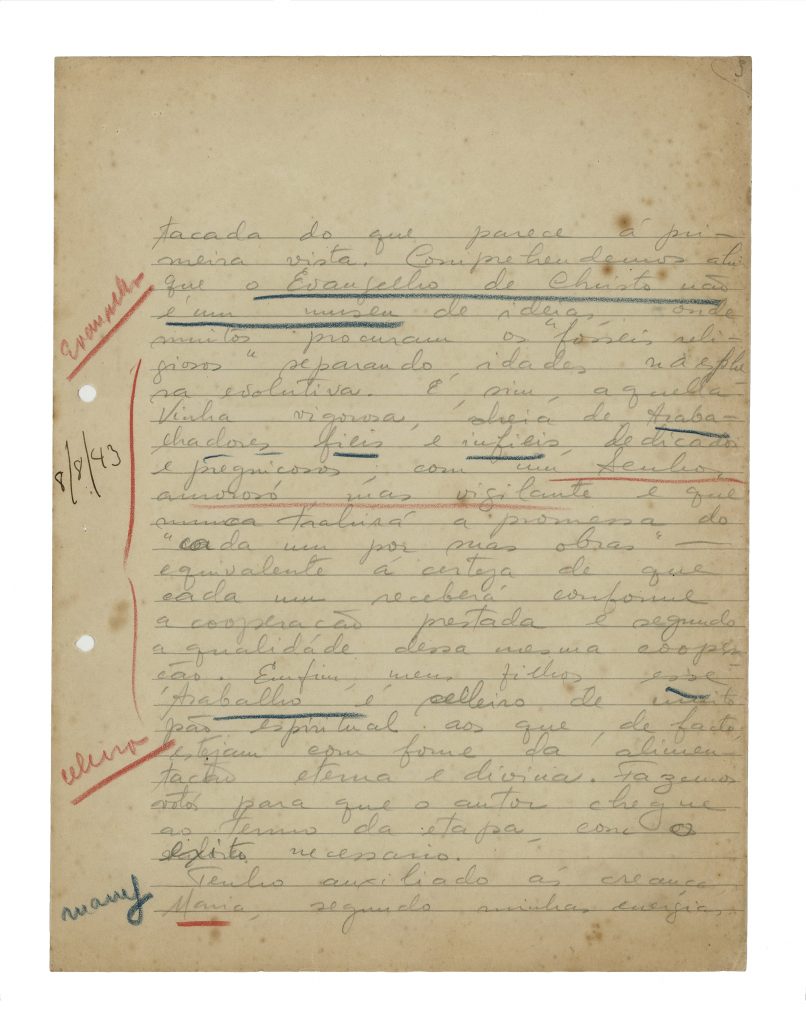 3
tacada do que parece á pri-
meira vista. Comprehendemos ahi
que o Evangelho de Christo não
é um museu de ideias, onde
muitos procuram os "fósseis reli-
giosos" separando idades na esphe-
ra evolutiva. É, sim, aquella
Vinha vigorosa, cheia de traba-
lhadores fieis e infieis, dedicados
e preguiçosos, com um Senhor
amoroso, mas vigilante e que
nunca trahirá a promessa do
"cada um por suas obras" —
equivalente á certeza de que
cada um receberá conforme
a cooperação prestada e segundo
a qualidade dessa mesma coope-
ração. Emfim, meus filhos, esse
trabalho é celleiro de muito
pão espiritual aos que, de facto,
estejam com fome da alimen-
tação eterna e divina. Fazemos
votos para que o autor chegue
ao termo da etapa, com o
exito necessario.
Tenho auxiliado ás creanças,
Maria, segundo minhas energias.
Evangelho
8/8/43
celleiro